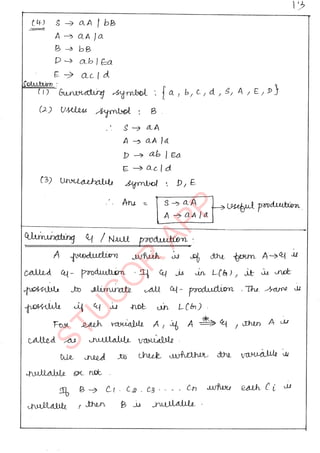 13
(4) S → aA | bB
A → aA | a
B → bB
D → ab | Ea
E → ac | d
Solution :
(1) Generating symbol : {a, b, c, d, S, A, E, D}
(2) Useless symbol : B
∴ S → aA
A → aA | a
D → ab | Ea
E → ac | d
(3) Unreachable symbol : D, E.
∴ Ans = S → aA → Useful production
A → aA | a
Eliminating ε / Null production.
A production which is of the form A→ε is
called ε- production. If ε is in L(G), it is not
possible to eliminate all ε- production. The same is
possible if ε is not in L(G).
For each variable A, if A ⇒* ε, then A is
called as nullable variable.
We need to check whether the variable is
nullable or not.
If B → C1. C2. C3. . . . Cn where each Ci is
nullable, then B is nullable.
STUCOR APP